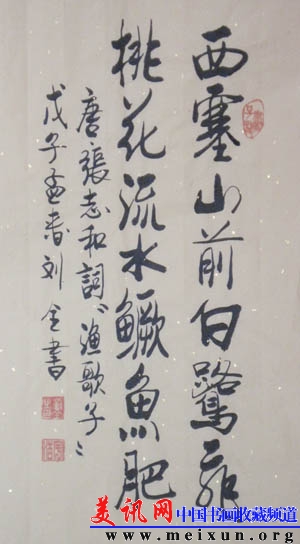 西塞山前白鷺飛
桃花流水鱖魚肥
唐張志和詞〝漁歌子〞
戊子孟春刘 書
美讯网 中国书画收藏频道
www.meixun.org